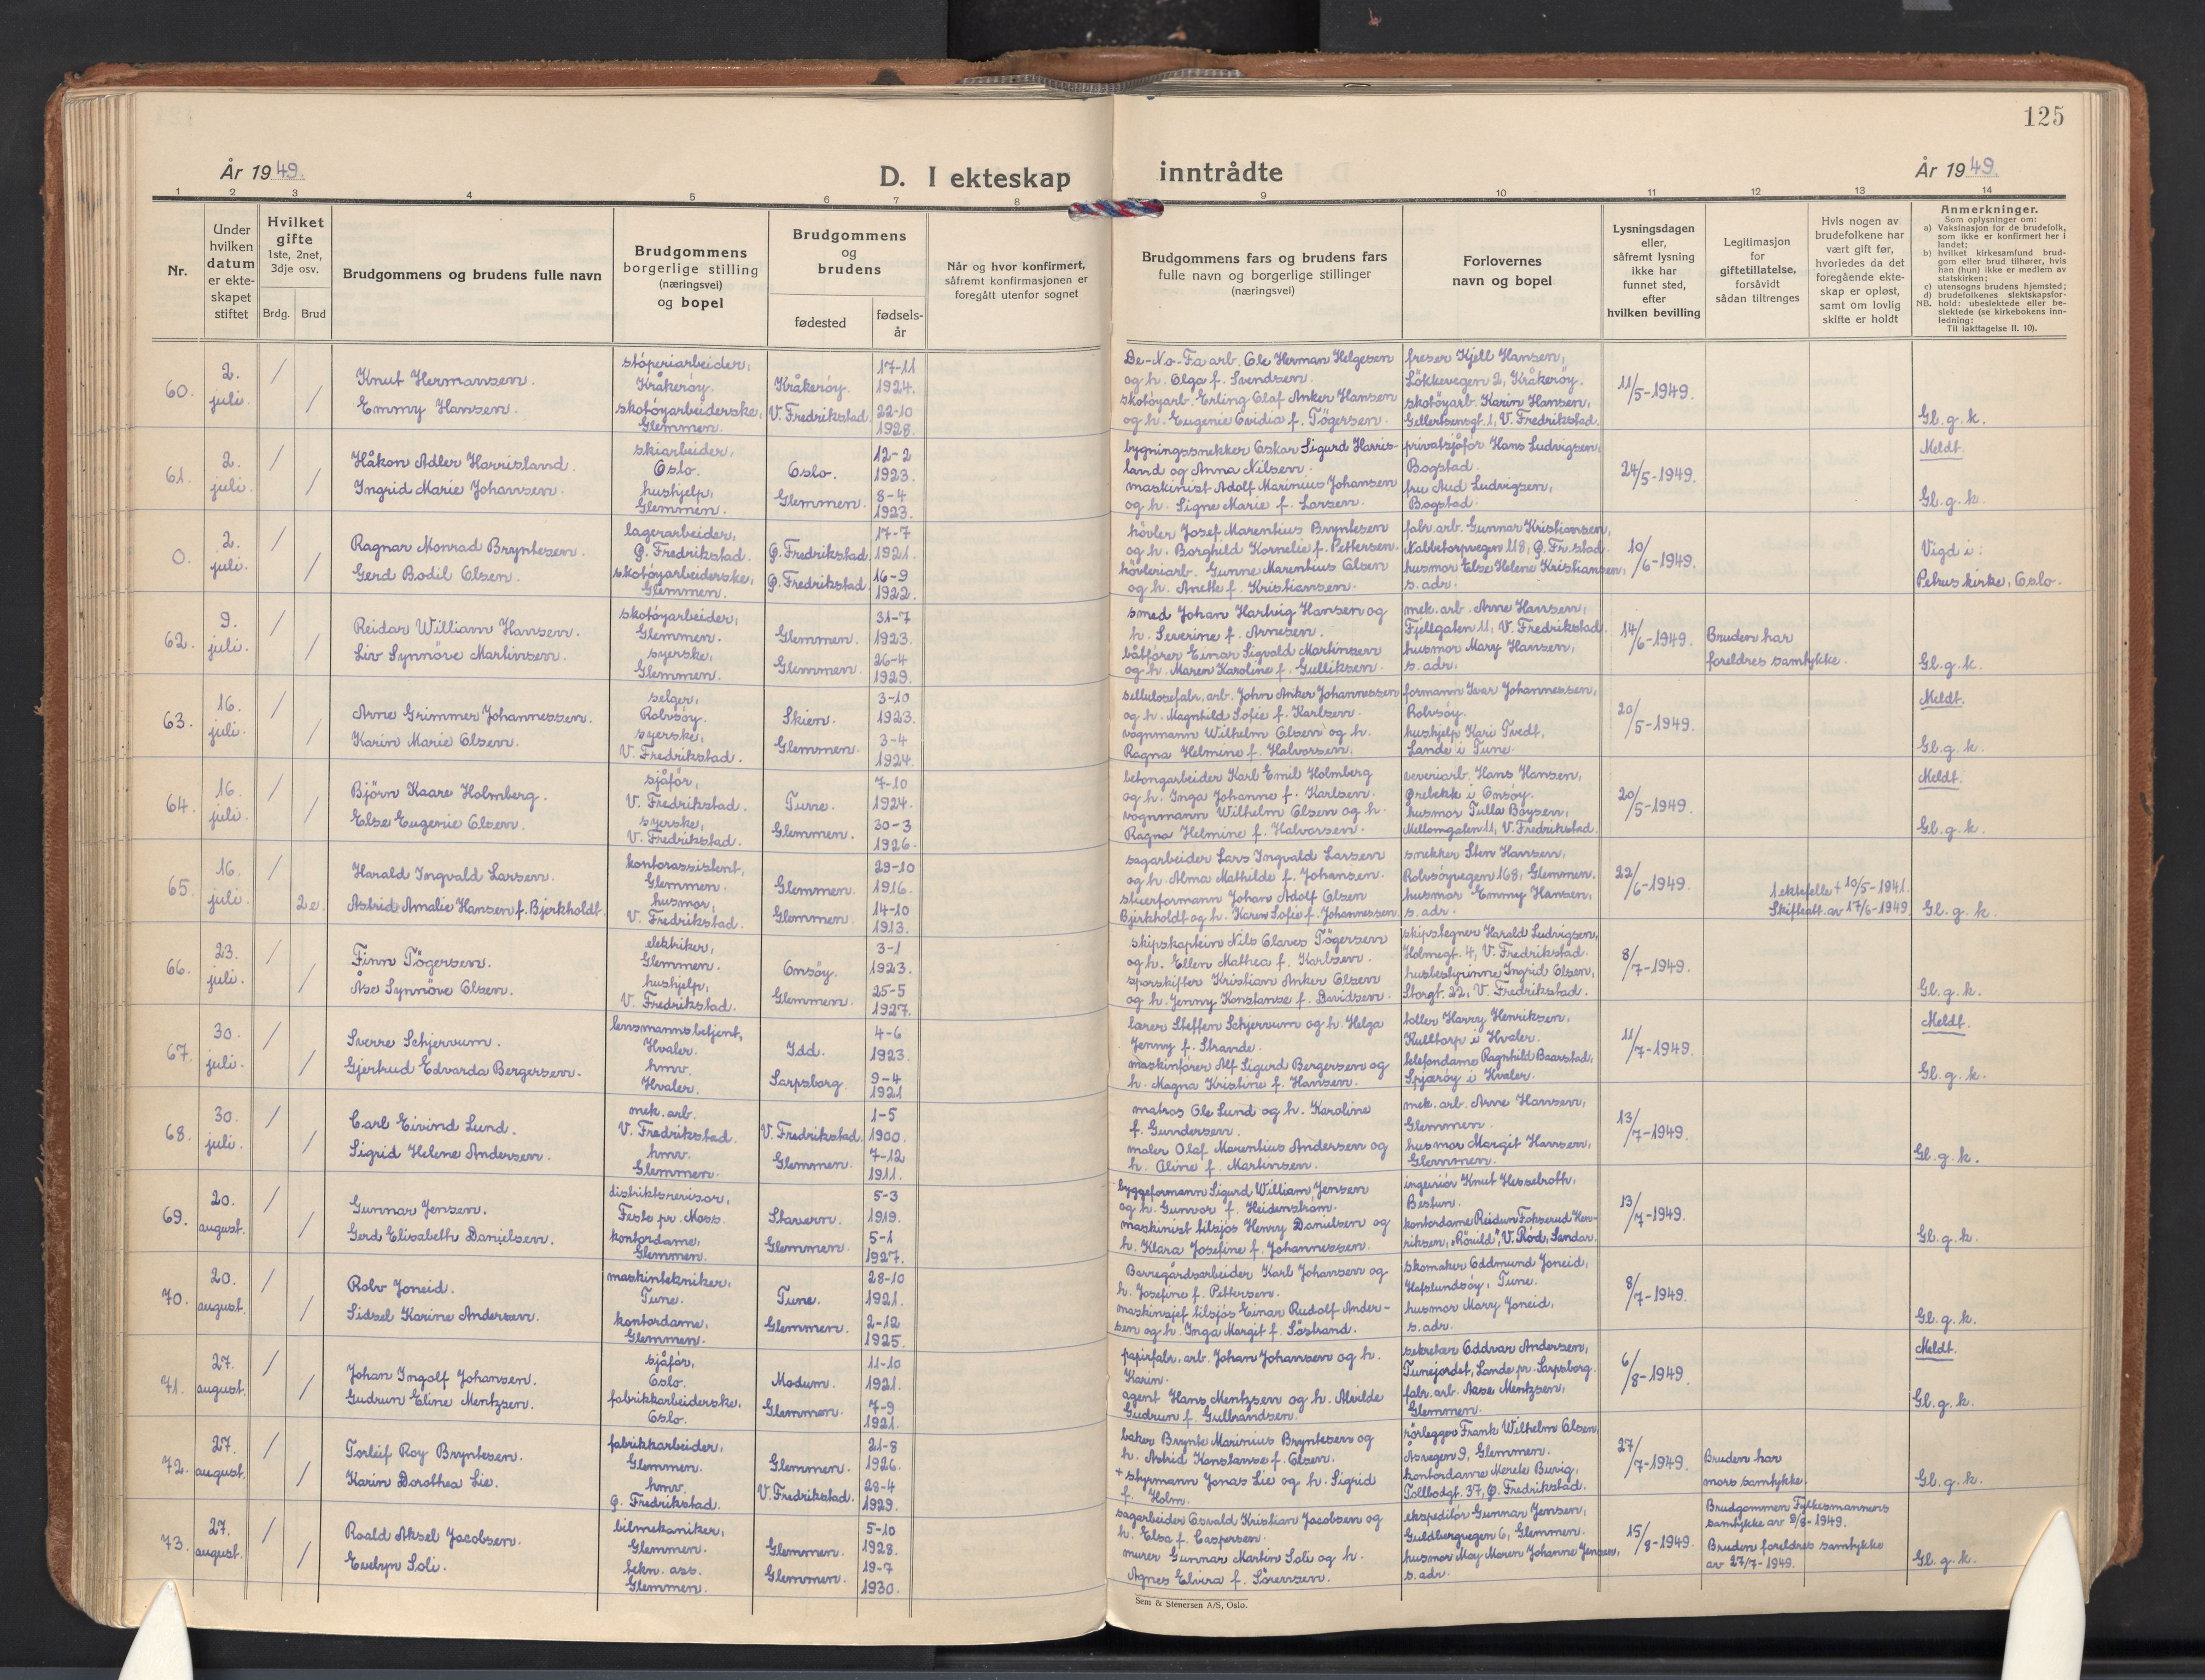 125
År 1949.
D. I ekteskap inntrådte
År 1949.
1 2 3 4 5 6 7 8 9 10 11 12 13 14
Nr.
Under hvilken datum er ekte-skapet stiftet
Hvilket gifte
1ste, 2net, 3dje osv.
Brdg. Brud
Brudgommens og brudens fulle navn
Brudgommens borgerlige stilling (næringsvei) og bopel
Brudgommens og brudens
fødested
fødsels-år
Når og hvor konfirmert, såfremt konfirmasjonen er foregått utenfor sognet
Brudgommens fars og brudens fars fulle navn og borgerlige stillinger (næringsvei)
Forlovernes navn og bopel
Lysningsdagen eller, såfremt lysning ikke har funnet sted, efter hvilken bevilling
Legitimasjon for giftetillatelse, forsåvidt sådan tiltrenges
Hvis nogen av brudefolkene har vært gift før, hvorledes da det foregående ekte-skap er opløst, samt om lovlig skifte er holdt
Anmerkninger.
Som oplysninger om:
a) Vaksinasjon for de brudefolk, som ikke er konfirmert her i landet;
b) hvilket kirkesamfund brud-gom eller brud tilhører, hvis han (hun) ikke er medlem av statskirken;
c) utensogns brudens hjemsted;
d) brudefolkenes slektskapsfor-hold: ubeslektede eller be-slektede (se kirkebokens inn-ledning:
NB. Til iakttagelse II. 10).
60. 2. juli. / /
Knut Hermansen.
Emmy Hansen.
støperiarbeider,
Kråkerøy.
skotøyarbeiderske,
Glemmen.
Kråkerøy.
V. Fredrikstad
17-11
1924.
22-10
1928.
De-No-Fa arb. Ole Herman Helgesen
og h. Olga f. Svendsen.
skotøyarb. Erling Olaf Anker Hansen
og h. Eugenie Ovidia f. Tögersen.
freser Kjell Hansen,
Lökkevegen 2, Kråkerøy.
skotøyarb. Karin Hansen,
Gellertsensgt. 1, V. Fredrikstad.
11/5-1949.
Gl. g. k.
61. 2. juli. / /
Håkon Adler Harrisland.
Ingrid Marie Johansen.
skiarbeider,
Oslo.
hushjelp,
Glemmen.
Oslo.
Glemmen.
12-2
1923.
8-4
1923.
bygningssnekker Oskar Sigurd Harris-
land og Anna Nilsen.
maskinist Adolf Marinius Johansen
og h. Signe Marie f. Larsen.
privatsjåfør Hans Ludvigsen,
Bogstad.
fru Aud Ludvigsen,
Bogstad.
24/5-1949.
Meldt.
Gl. g. k.
0. 2. juli. / /
Ragnar Monrad Bryntesen.
Gerd Bodil Olsen.
lagerarbeider,
Ø. Fredrikstad.
skotøyarbeiderske,
Glemmen.
Ø. Fredrikstad
Ø. Fredrikstad
17-7
1921.
16-9
1922.
høvler Josef Marentius Bryntesen
og h. Borghild Kornelie f. Pettersen.
høvleriarb. Gunne Marentius Olsen
og h. Anette f. Kristiansen.
fabr. arb. Gunnar Kristiansen,
Nabbetorpvegen 118, Ø. Fr.stad.
husmor Else Helene Kristiansen,
s. adr.
10/6-1949.
Vigd i:
Petrus kirke, Oslo.
62. 9. juli. / /
Reidar William Hansen.
Liv Synnöve Martinsen.
skotøyarbeider,
Glemmen.
syerske,
Glemmen.
Glemmen.
Glemmen.
31-7
1923.
26-4
1929.
smed Johan Hartvig Hansen og
h. Severine f. Arnesen.
båtfører Einar Sigvald Martinsen
og h. Maren Karoline f. Gulliksen.
mek. arb. Arne Hansen,
Fjellgaten 11, V. Fredrikstad.
husmor Mary Hansen,
s. adr.
14/6-1949.
Bruden har
foreldres samtykke.
Gl. g. k.
63. 16. juli. / /
Arne Grimmer Johannessen.
Karin Marie Olsen.
selger,
Rolvsøy.
syerske,
V. Fredrikstad.
Skien.
Glemmen.
3-10
1923.
3-4
1924.
sellulosefabr. arb. John Anker Johannessen
og h. Magnhild Sofie f. Karlsen.
vognmann Wilhelm Olsen og h.
Ragna Helmine f. Halvorsen.
formann Ivar Johannessen,
Rolvsøy.
hushjelp Kari Tvedt,
Lande i Tune.
20/5-1949.
Meldt.
Gl. g. k.
64. 16. juli. / /
Björn Kaare Holmberg.
Else Eugenie Olsen.
sjåfør,
V. Fredrikstad.
syerske,
V. Fredrikstad.
Tune.
Glemmen.
7-10
1924.
30-3
1926.
betongarbeider Karl Emil Holmberg
og h. Inga Johanne f. Karlsen.
vognmann Wilhelm Olsen og h.
Ragna Helmine f. Halvorsen.
veveriarb. Hans Hansen,
Ørebekk i Onsøy.
husmor Tulla Boysen,
Mellomgaten 11, V. Fredrikstad.
20/5-1949.
Meldt.
Gl. g. k.
65. 16. juli. / 2e.
Harald Ingvald Larsen.
Astrid Amalie Hansen f. Bjerkholdt.
kontorassistent,
Glemmen.
husmor,
V. Fredrikstad.
Glemmen.
Glemmen.
29-10
1916.
14-10
1913.
sagarbeider Lars Ingvald Larsen
og h. Alma Mathilde f. Johansen.
stuerformann Johan Adolf Olsen
Bjerkholdt og h. Karen Sofie f. Johannessen.
snekker Sten Hansen,
Rolvsøyvegen 168, Glemmen.
husmor Emmy Hansen,
s. adr.
22/6-1949.
1 ektefelle + 10/5-1941.
Skifteatt. av 17/6-1949.
Gl. g. k.
66. 23. juli. / /
Finn Tögersen.
Åse Synnöve Olsen.
elektriker,
Glemmen.
hushjelp,
V. Fredrikstad.
Onsøy.
Glemmen.
3-1
1923.
25-5
1927.
skipskaptein Nils Olaves Tögersen
og h. Ellen Mathea f. Karlsen.
sporskifter Kristian Anker Olsen
og h. Jenny Konstanse f. Davidsen.
skipstegner Harald Ludvigsen,
Holmegt. 4, V. Fredrikstad.
husbestyrinne Ingrid Olsen,
Storgt. 22, V. Fredrikstad.
8/7-1949.
Gl. g. k.
67. 30. juli. / /
Sverre Schjervum.
Gjertrud Edvarda Bergersen.
lensmannsbetjent,
Hvaler.
hmv.
Hvaler.
Idd.
Sarpsborg.
4-6
1923.
9-4
1921
lærer Steffen Schjervum og h. Helga
Jenny f. Strande.
maskinfører Alf Sigurd Bergersen og
h. Magna Kristine f. Hansen.
toller Harry Henriksen,
Kulltorp i Hvaler.
telefondame Ragnhild Baarstad,
Spjærøy i Hvaler.
11/7-1949.
Meldt.
Gl. g. k.
68. 30. juli. / /
Carl Eivind Lund.
Sigrid Helene Andersen.
mek. arb.
V. Fredrikstad.
hmv.
Glemmen.
V. Fredrikstad.
Glemmen.
1-5
1900.
7-12
1911.
matros Ole Lund og h. Karoline
f. Gundersen.
maler Olaf Marentius Andersen og
h. Aline f. Martinsen.
mek. arb. Arne Hansen,
Glemmen.
husmor Margit Hansen,
Glemmen.
13/7-1949.
Gl. g. k.
69. 20. august. / /
Gunnar Jensen.
Gerd Elisabeth Danielsen.
distriktsrevisor,
pr. Moss.
kontordame,
Glemmen.
Stavern.
Glemmen.
5-3
1919.
5-1
1927.
byggeformann Sigurd William Jensen
og h. Gunvor f. Heidenstrøm.
maskinist tilsjøs Henry Danielsen og
h. Klara Josefine f. Johannessen.
ingeniør Knut Hesselroth,
Bestun.
kontordame Reidun Fokserud Hen-
riksen, V. Rød, Sandar.
13/7-1949.
Gl. g. k.
70. 20. august. / /
Rolv Joneid.
Sidsel Karine Andersen.
maskintekniker,
Tune.
kontordame,
Glemmen.
Tune.
Glemmen.
28-10
1921.
2-12
1925.
Borregårdsarbeider Karl Johansen og
h. Josefine f. Pettersen.
maskinsjef tilsjøs Einar Rudolf Ander-
sen og h. Inga Margit f. Söstrand.
skomaker Oddmund Joneid,
Hafslundsøy, Tune.
husmor Mary Joneid,
s. adr.
8/7-1949.
Gl. g. k.
71. 27. august. / /
Johan Ingolf Johansen.
Gudrun Eline Mentzsen.
sjåfør,
Oslo.
fabrikkarbeiderske,
Oslo.
Modum.
Glemmen.
11-10
1921.
7-9
1921.
papirfabr. arb. Johan Johansen og h.
Karin.
agent Hans Mentzsen og h. Alvilde
Gudrun f. Gulbrandsen.
sekretær Oddvar Andersen,
Tunejordet, Lande pr. Sarpsborg.
fabr. arb. Aase Mentzsen,
Glemmen.
6/8-1949.
Meldt.
Gl. g. k.
72. 27. august. / /
Torleif Roy Bryntesen.
Karin Dorothea Lie.
fabrikkarbeider,
Glemmen.
hmv.
Ø. Fredrikstad.
Glemmen.
V. Fredrikstad.
21-8
1926.
28-4
1929.
baker Brynte Marinius Bryntesen og
h. Astrid Konstanse f. Olsen.
+ styrmann Jonas Lie og h. Sigrid
f. Holm.
rørlegger Frank Wilhelm Olsen,
Åsvegen 9, Glemmen.
kontordame Merete Buvig,
Tollbodgt. 37, Ø. Fredrikstad.
27/7-1949.
Bruden har
mors samtykke.
Gl. g. k.
73. 27. august. / /
Roald Aksel Jacobsen.
Evelyn Soli.
bilmekaniker,
Glemmen.
tekn. ass.
Glemmen.
Glemmen.
Glemmen.
5-10
1928.
19-7
1930.
sagarbeider Osvald Kristian Jacobsen og
h. Elsa f. Caspersen.
murer Gunnar Martin Soli og h.
Agnes Elvira f. Sörensen.
ekspeditør Gunnar Jensen,
Guldbergvegen 6, Glemmen.
husmor May Maren Johanne Jensen,
s. adr.
15/8-1949.
Brudgommen Fylkesmannens
samtykke av 9/8-1949.
Bruden foreldres samtykke
av 27/7-1949.
Gl. g. k.
Sem & Stenersen A/S, Oslo.